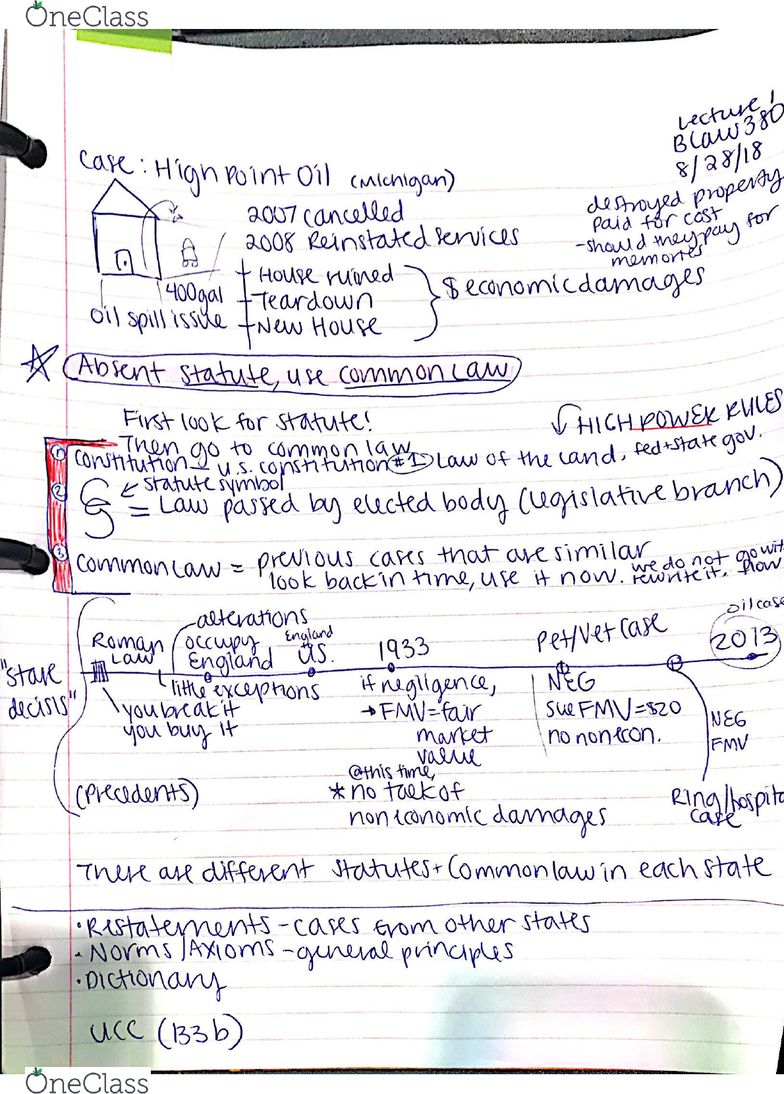 OneClass
Lecture 1
BLaw 380
8/28/18
Case: High Point Oil (Michigan)
2007 Cancelled
2008 Reinstated services
destroyed property
paid for cost
- should they pay for
memories
400gal
oil spill issue
House ruined
Teardown
New House
$ economic damages
Absent statute, use common law
First look for statute!
Then go to common law
HIGH POWER RULES
① Constitution - U.S. constitution #1 Law of the land, fed+state gov.
② § statute symbol
= Law passed by elected body (legislative branch)
③ Common Law = previous cases that are similar
look back in time, use it now. we do not
rewrite it.
oil case
"stare decisis"
Roman Law
alterations
occupy England
England
US.
1933
Pet/Vet Case
2013
little exceptions
you break it
you buy it
if negligence,
→ FMV = fair
market
value
NEG
sue FMV = $20
no nonecon.
NEG
FMV
@ this time,
* no talk of
non economic damages
(precedents)
Ring/hospita
case
There are different statutes + Common law in each state
• Restatements - cases from other states
• Norms/Axioms - general principles
• Dictionary
UCC (133b)
OneClass